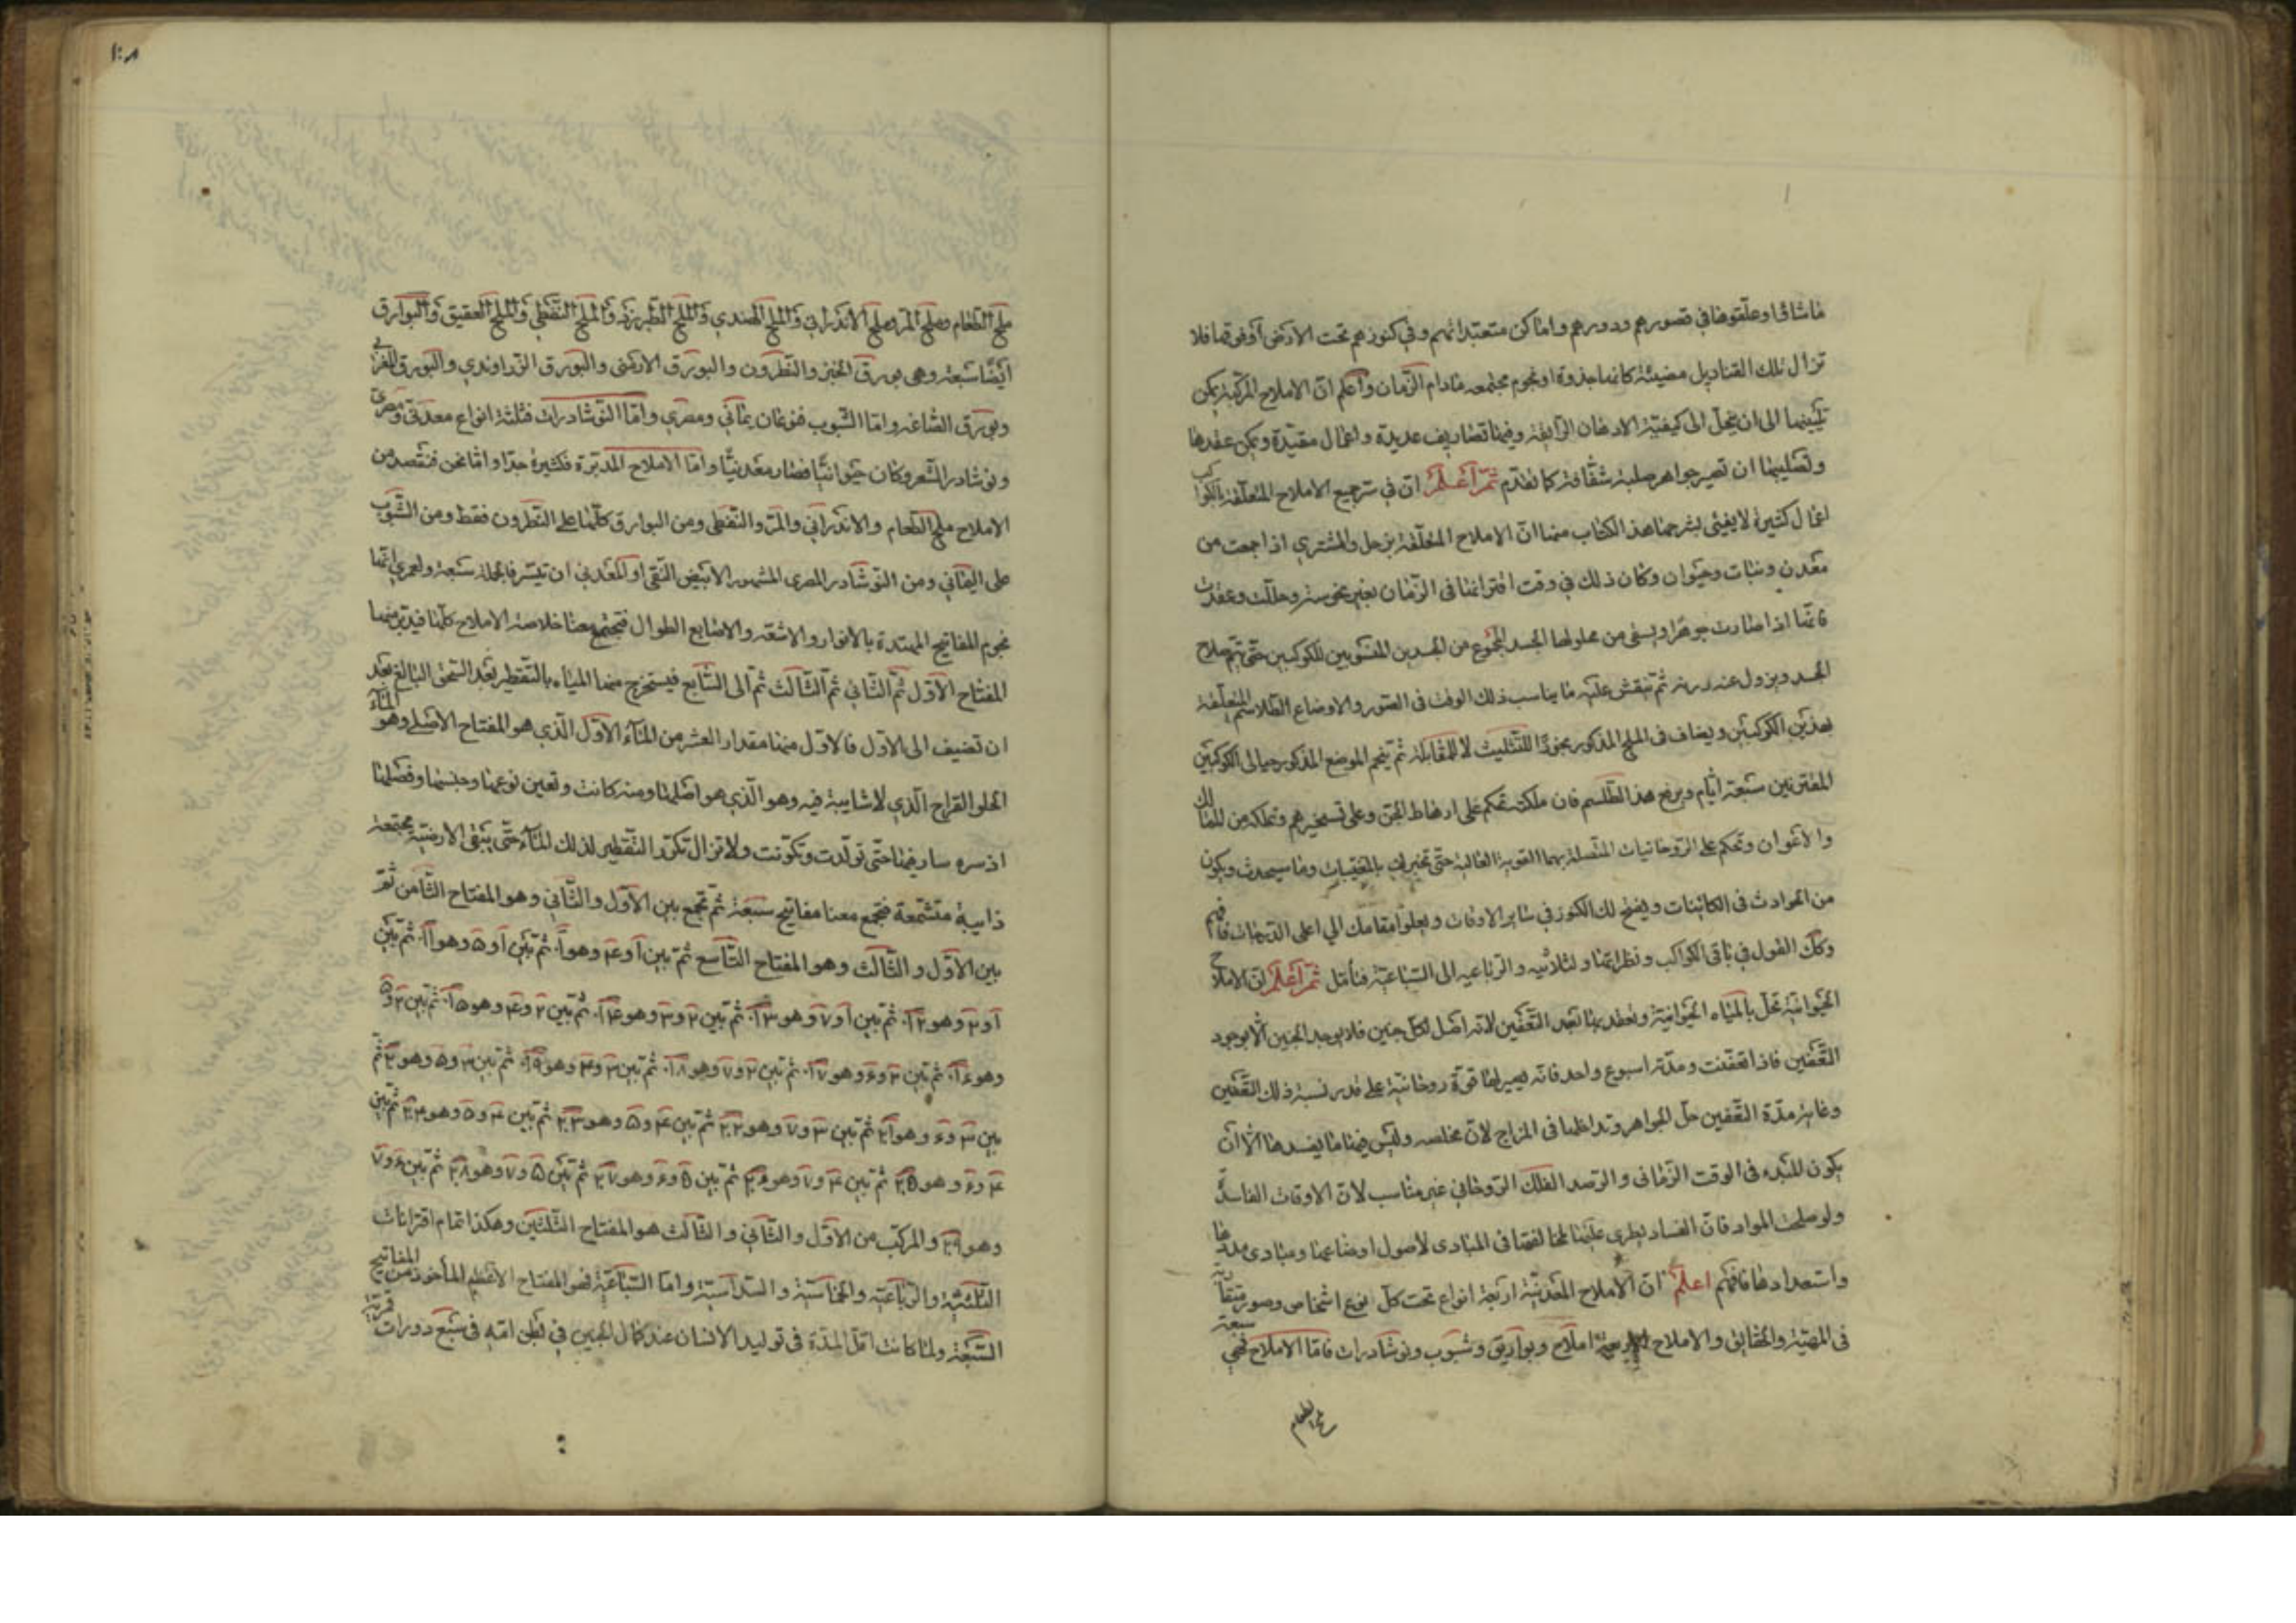 ما شاؤا وعلقوها في قصورهم ودورهم واماكن متعبداتهم وفي كنوزهم تحت الارض او فوقها فلا
تزال تلك القناديل مضيئة كانها جذوة او نجوم مجتمعه مادام الزمان واعلم ان الاملاح المركبة يمكن
تليينها الى ان تنحل الى كيفية الادهان الرايقة وفيها تصاريف عديدة واعمال مقيدة ويمكن عقدها
وتصليبها ان تصير جواهر صلبة شفافة كما تقدم ثم اعلم ان في ترجيع الاملاح المتعلقة بالكواكب
اعمال كثيرة لا يفي بشرحها هذا الكتاب منها ان الاملاح المتعلقة بزحل والمشتري اذا جمعت من
معدن ونبات وحيوان وكان ذلك في وقت اقترانهما في الزمان بغير نحوسة وحللت وعقدت
فانها اذا صارت جوهرا ويسقى من محلولها الجسد المجموع من الجسدين المنسوبين للكوكبين حتى يتم صلاح
الجسد ويزول عنه درنه ثم تنقش عليه ما يناسب ذلك الوقت في الصور والاوضاع الطلاسم المتعلقة
بهذين الكوكبين ويضاف في الملح المذكور بخورا للتثليث لا للمقابلة ثم يبخر الموضع المذكور حيالى الكوكبين
المقترنين سبعة ايام ويرفع هذا الطلسم فان ملكته تحكم على ارهاط الجن وعلى تسخيرهم وتملكه من الممالك
والاعوان وتحكم على الروحانيات المتصلة بهما القوية الغالبة حتى تخبرك بالمغيبات وما سيحدث ويكون
من الحوادث في الكائنات ويفتح لك الكنوز في ساير الاوقات ويعلوا مقامك الي اعلى الدرجات فافهم
وكك القول في باقي الكواكب ونظراتها وثلاثيه والرباعيه الى السباعية فتأمل ثم اعلم ان الاملاح
الحيوانية تحل بالمياه الحيوانية وتعقد بها بعد التعفين لانه اصل لكل جنين فلا يوجد الجنين الا بوجود
التعفين فاذا تعفنت ومدته اسبوع واحد فانه يصير لها قوة روحانية على قدر نسبة ذلك التعفين
وغاية مدة التعفين حل الجواهر وتداخلها في المزاج لان مخلصه وليس فيها ما يفسدها الا ان
يكون للمبدء في الوقت الزماني والرصد الفلك الروحاني غير مناسب لان الاوقات الفاسدة
ولو صلحت المواد فان الفساد يطرى عليها لمخالفتها في المبادى لاصول اوضاعها ومبادى مددها
واستعدادها فافهم اعلم ان الاملاح المعدنية اربعة انواع تحت كل نوع اشخاص وصور متقاربة
في المهية والحقايق والاملاح املاح وبواريق وشبوب ونوشادرات فاما الاملاح فهي سبعة
ملح الطعام
١٠٨
ملح الطعام وملح المر وملح الاندراني والملح الهندي والملح الطبرزد والملح النفطي والملح العقيق والبوارق
ايضا سبعة وهي بورق الخبز والنطرون والبورق الارمني والبورق الزراوندي والبورق الغربي
وبورق الصاغه واما الشبوب فنوعان يماني ومصري واما النوشادرات فثلثة انواع معدني ومصري
ونوشادر الشعر وكان حيوانيا فصار معدنيا واما الاملاح المدبرة فكثيرة جدا واما نحن فنقصد من
الاملاح ملح الطعام والاندراني والمر والنفطى ومن البوارق كلها على النطرون فقط ومن الشبوب
على اليماني ومن النوشادر المصرى المشهور الابيض النقي او المعدني ان تيسر فالجملة سبعة ولعمري انها
نجوم المفاتيح الممتدة بالانوار والاشعة والاصابع الطوال فتجتمع معنا خلاصة الاملاح كلها فيدبر منها
المفتاح الاول ثم الثاني ثم الثالث ثم الى السابع فيستخرج منها المياه بالتقطير بعد السحق البالغ بعد
ان تضيف الى الاول فالاول منها مقدار العشر من الماء الاول الذي هو المفتاح الاصلي وهو الماء
الحلو القراح الذي لا شايبة فيه وهو الذي هو اصلها ومنه كانت وتعين نوعها وجنسها وفصلها
اذ سره سار فيها حتى تولدت وتكونت ولا تزال تكرر التقطير لذلك الماء حتى يبقى الارضية مجتمعة
ذايبة متشمعة فتجمع معنا مفاتيح سبعة ثم تجمع بين الاول والثاني وهو المفتاح الثامن ثم
بين الاول والثالث وهو المفتاح التاسع ثم بين ١ و۴ وهو ١٠ ثم بين ١ و۵ وهو ١١ ثم بين
١ و۶ وهو ١٢ ثم بين ١ و٧ وهو ١٣ ثم بين ٢ و٣ وهو ١۴ ثم بين ٢ و۴ وهو ١۵ ثم بين ٢ و۵
وهو ١۶ ثم بين ٢ و۶ وهو ١٧ ثم بين ٢ و٧ وهو ١٨ ثم بين ٣ و۴ وهو ١٩ ثم بين ٣ و۵ وهو ٢٠ ثم
بين ٣ و۶ وهو ٢١ ثم بين ٣ و٧ وهو ٢٢ ثم بين ۴ و۵ وهو ٢٣ ثم بين ۴ و وهو ٢۴ ثم بين
۴ و وهو ٢۵ ثم بين ۴ و٧ وهو ٢۶ ثم بين ۵ و۶ وهو ٢٧ ثم بين ۵ و٧ وهو ٢٨ ثم بين ۶ و٧
وهو ٢٩ والمركب من الاول والثاني والثالث هو المفتاح الثلثين وهكذا تمام اقترانات
الثلثية والرباعية والخماسية والسداسية واما السباعية فهو المفتاح الاعظم المأخوذ من المفاتيح
السبعة ولما كانت اقل المدة في توليد الانسان عند كمال الجنين في بطن امه في سبع دورات قمرية